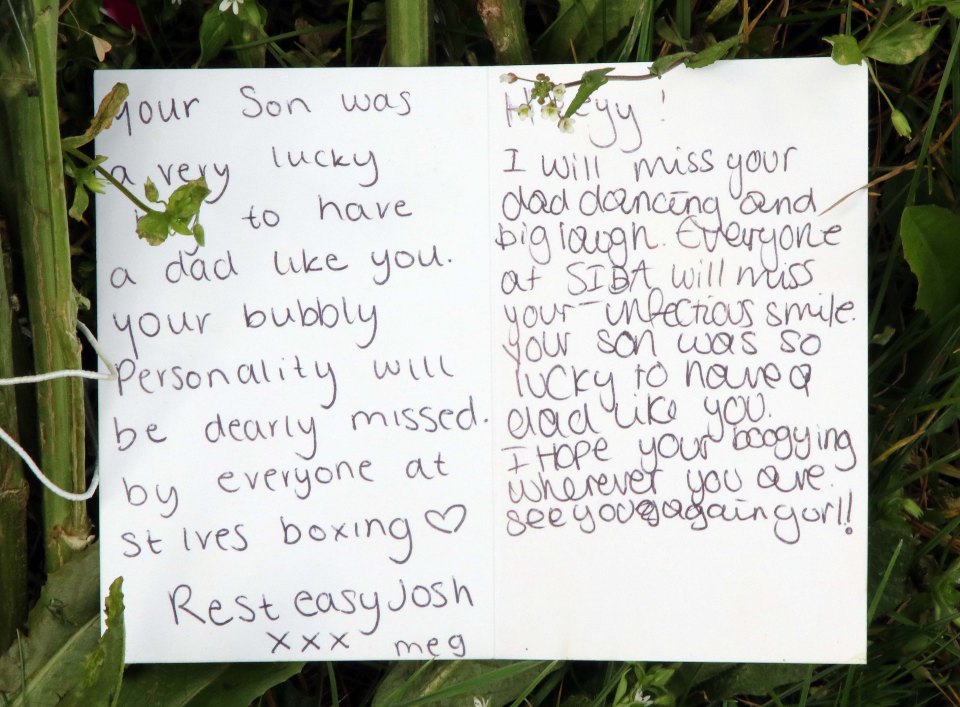 your Son was
a very lucky
to have
a dad like you.
your bubbly
Personality will
be dearly missed.
by everyone at
st Ives boxing ♡
Rest easy Josh
xxx meg
!
I will miss your
dad dancing and
big laugh. Everyone
at SIBA will miss
your infectious smile.
Your son was so
lucky to have a
dad like you.
I HOPE your boogying
wherever you are.
see you again gurl!